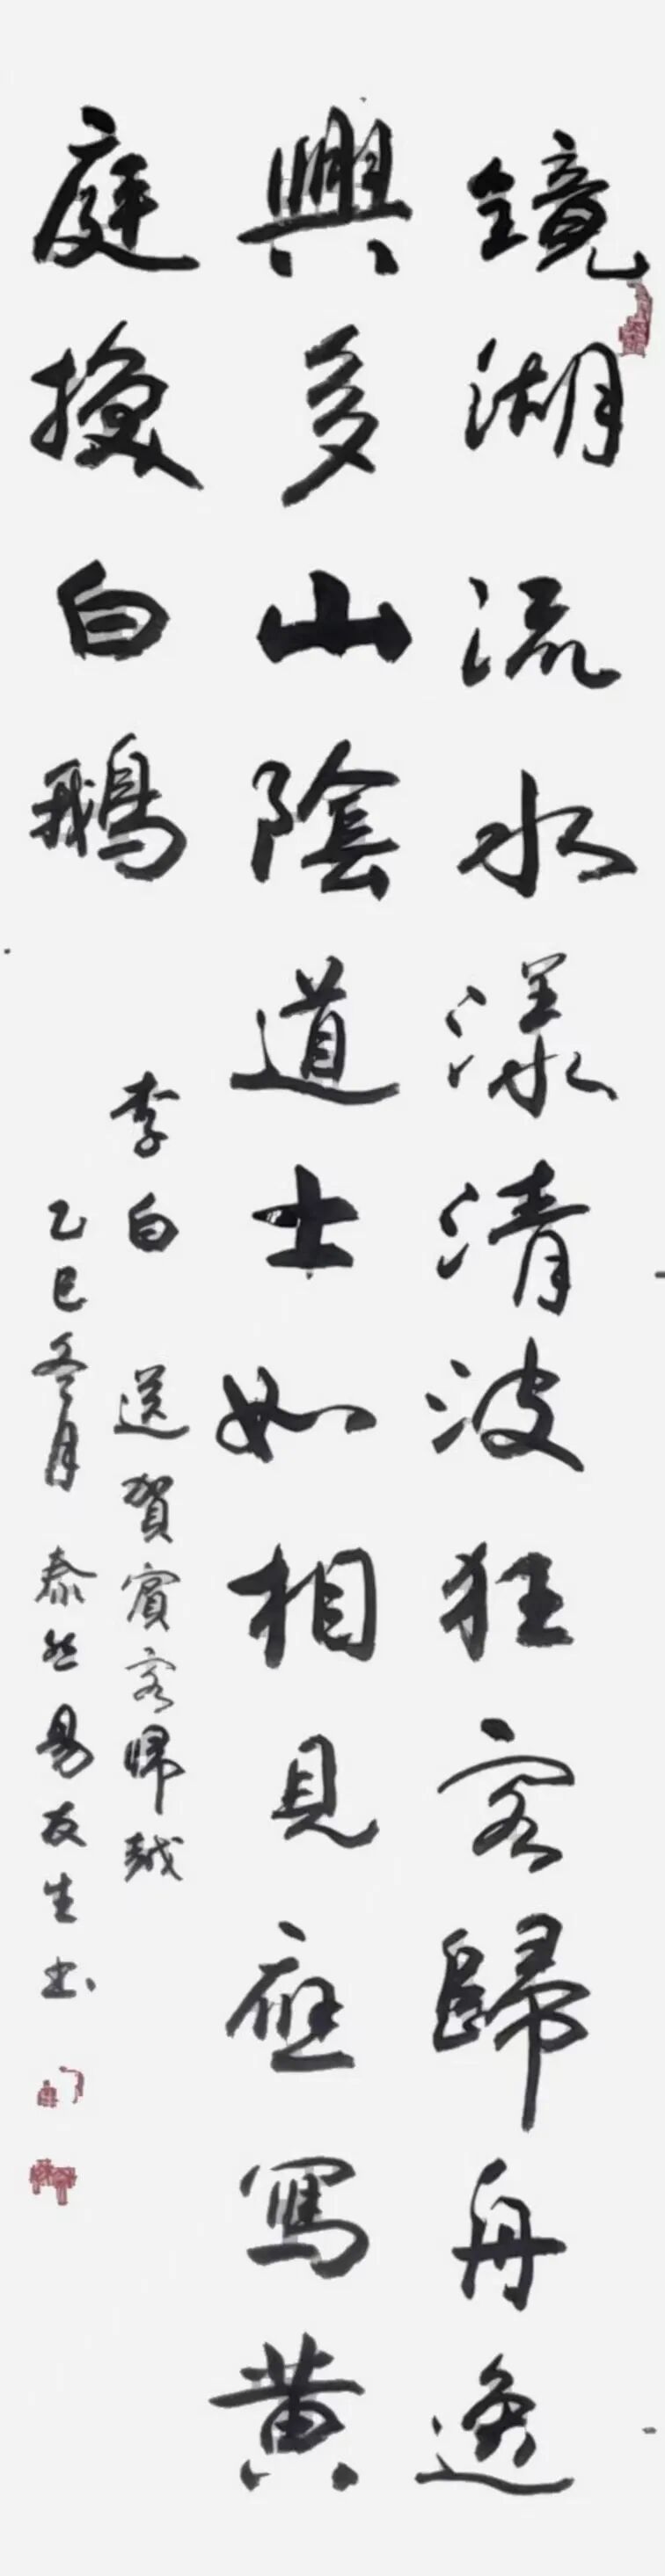 鏡湖流水漾清波狂客歸舟逸
興多山陰道士如相見應寫黄
庭換白鵝
李白 送賀賓客歸越
乙巳冬月 泰然 易友生书